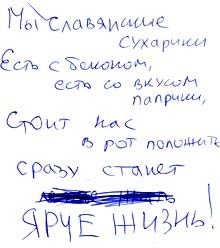 Мы славянские
сухарики
Есть с беконом,
есть со вкусом
паприки,
Стоит нас
в рот положить
сразу станет
ЯРЧЕ ЖИЗНЬ!